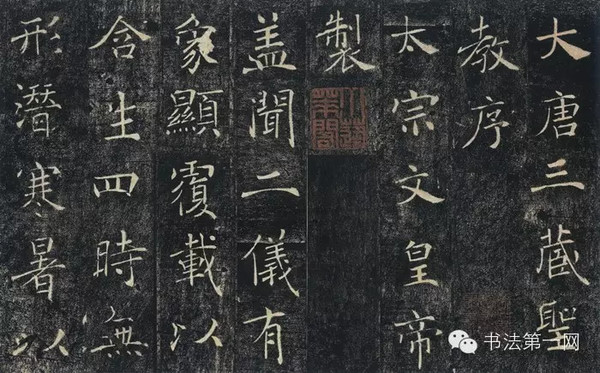 大唐三藏聖
教序
太宗文皇帝
製
小蓬
萊閣
盖聞二儀有
象顯覆載以
含生四時無
形潛寒暑以
书法第一网